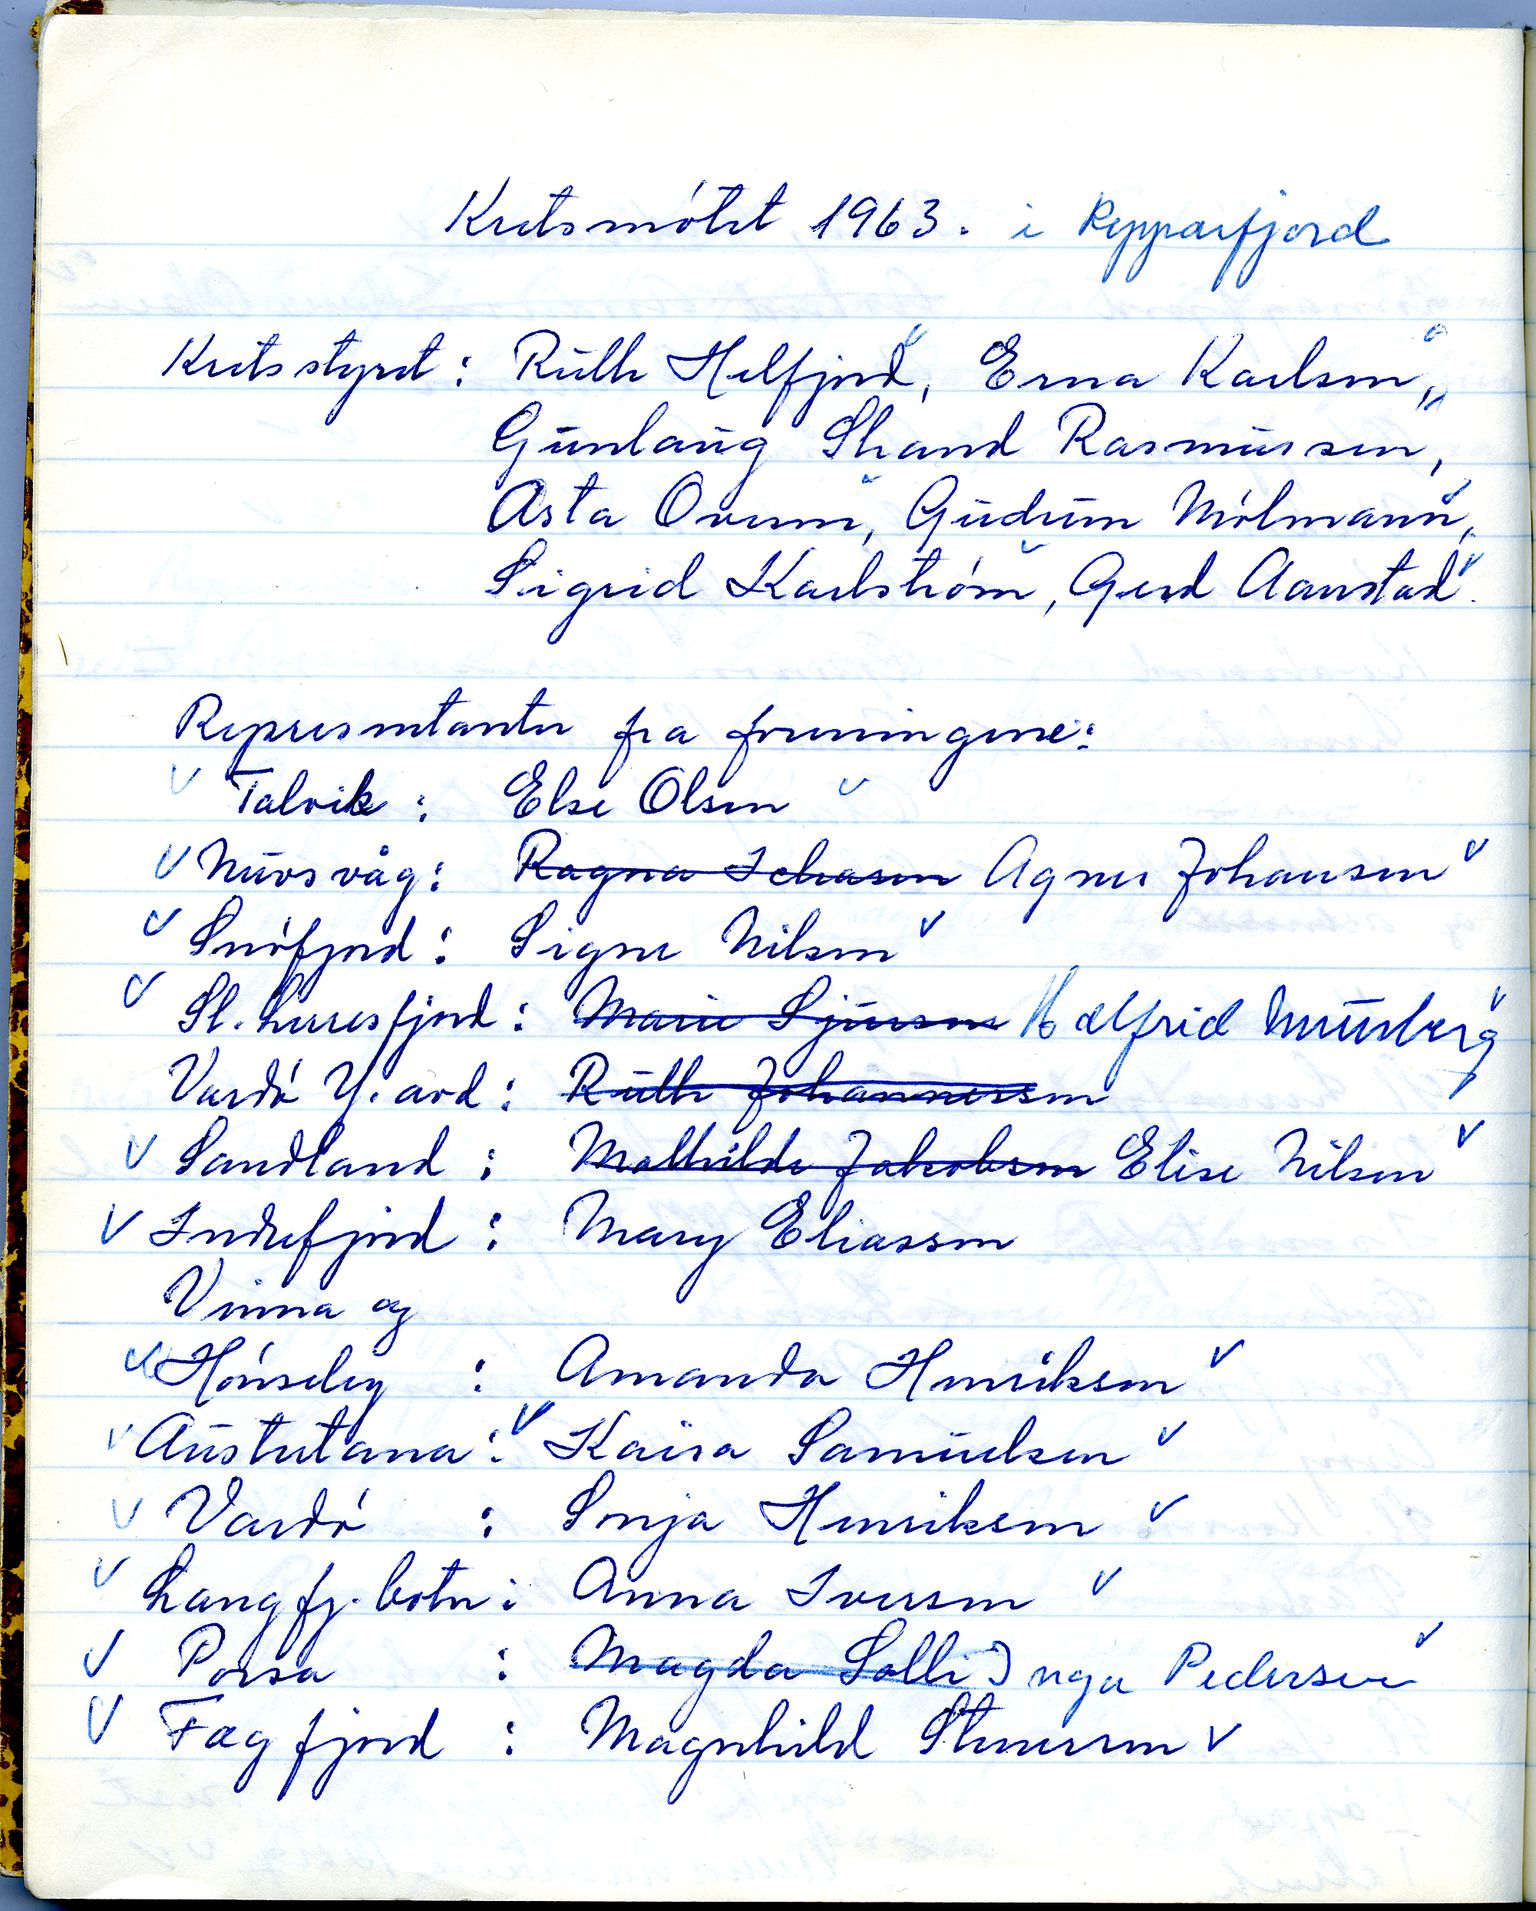 Kretsmötet 1963. i Repparfjord
Kretsstyret: Ruth Helfjord, Erna Karlsen,
Gunlaug Strand Rasmussen,
Asta Overn, Gudrun Mölmann,
Sigrid Karlström, Gerd Aanstad.
Representanter fra foreningene:
Talvik: Else Olsen
Nuvsvåg: Ragna Isaksen Agnes Johansen
Snöfjord: Signe Nilsen
St. Lerresfjord: Marie Sjursen Halfrid Murberg
Vardö Y. avd: Ruth Johannessen
Sandland: Mathilde Jakobsen Elise Nilsen
Indrefjord: Mary Eliassen
Vinna og
Hönseby: Amanda Henriksen
Austertana: Kaisa Samuelsen
Vardö: Sonja Henriksen
Langfj. botn: Anna Iversen
Porsa: Magda Solli Inga Pedersen
Fægfjord: Magnhild Stenersen